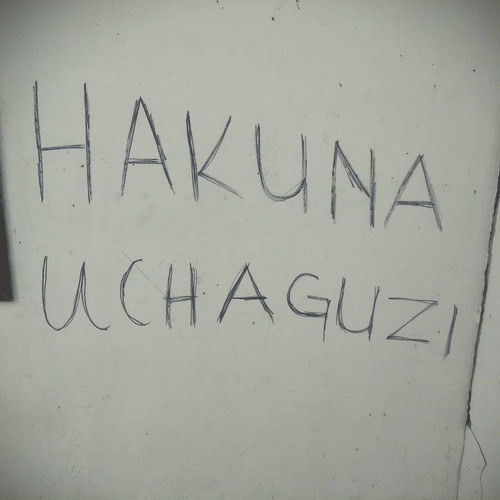 HAKUNA
UCHAGUZI